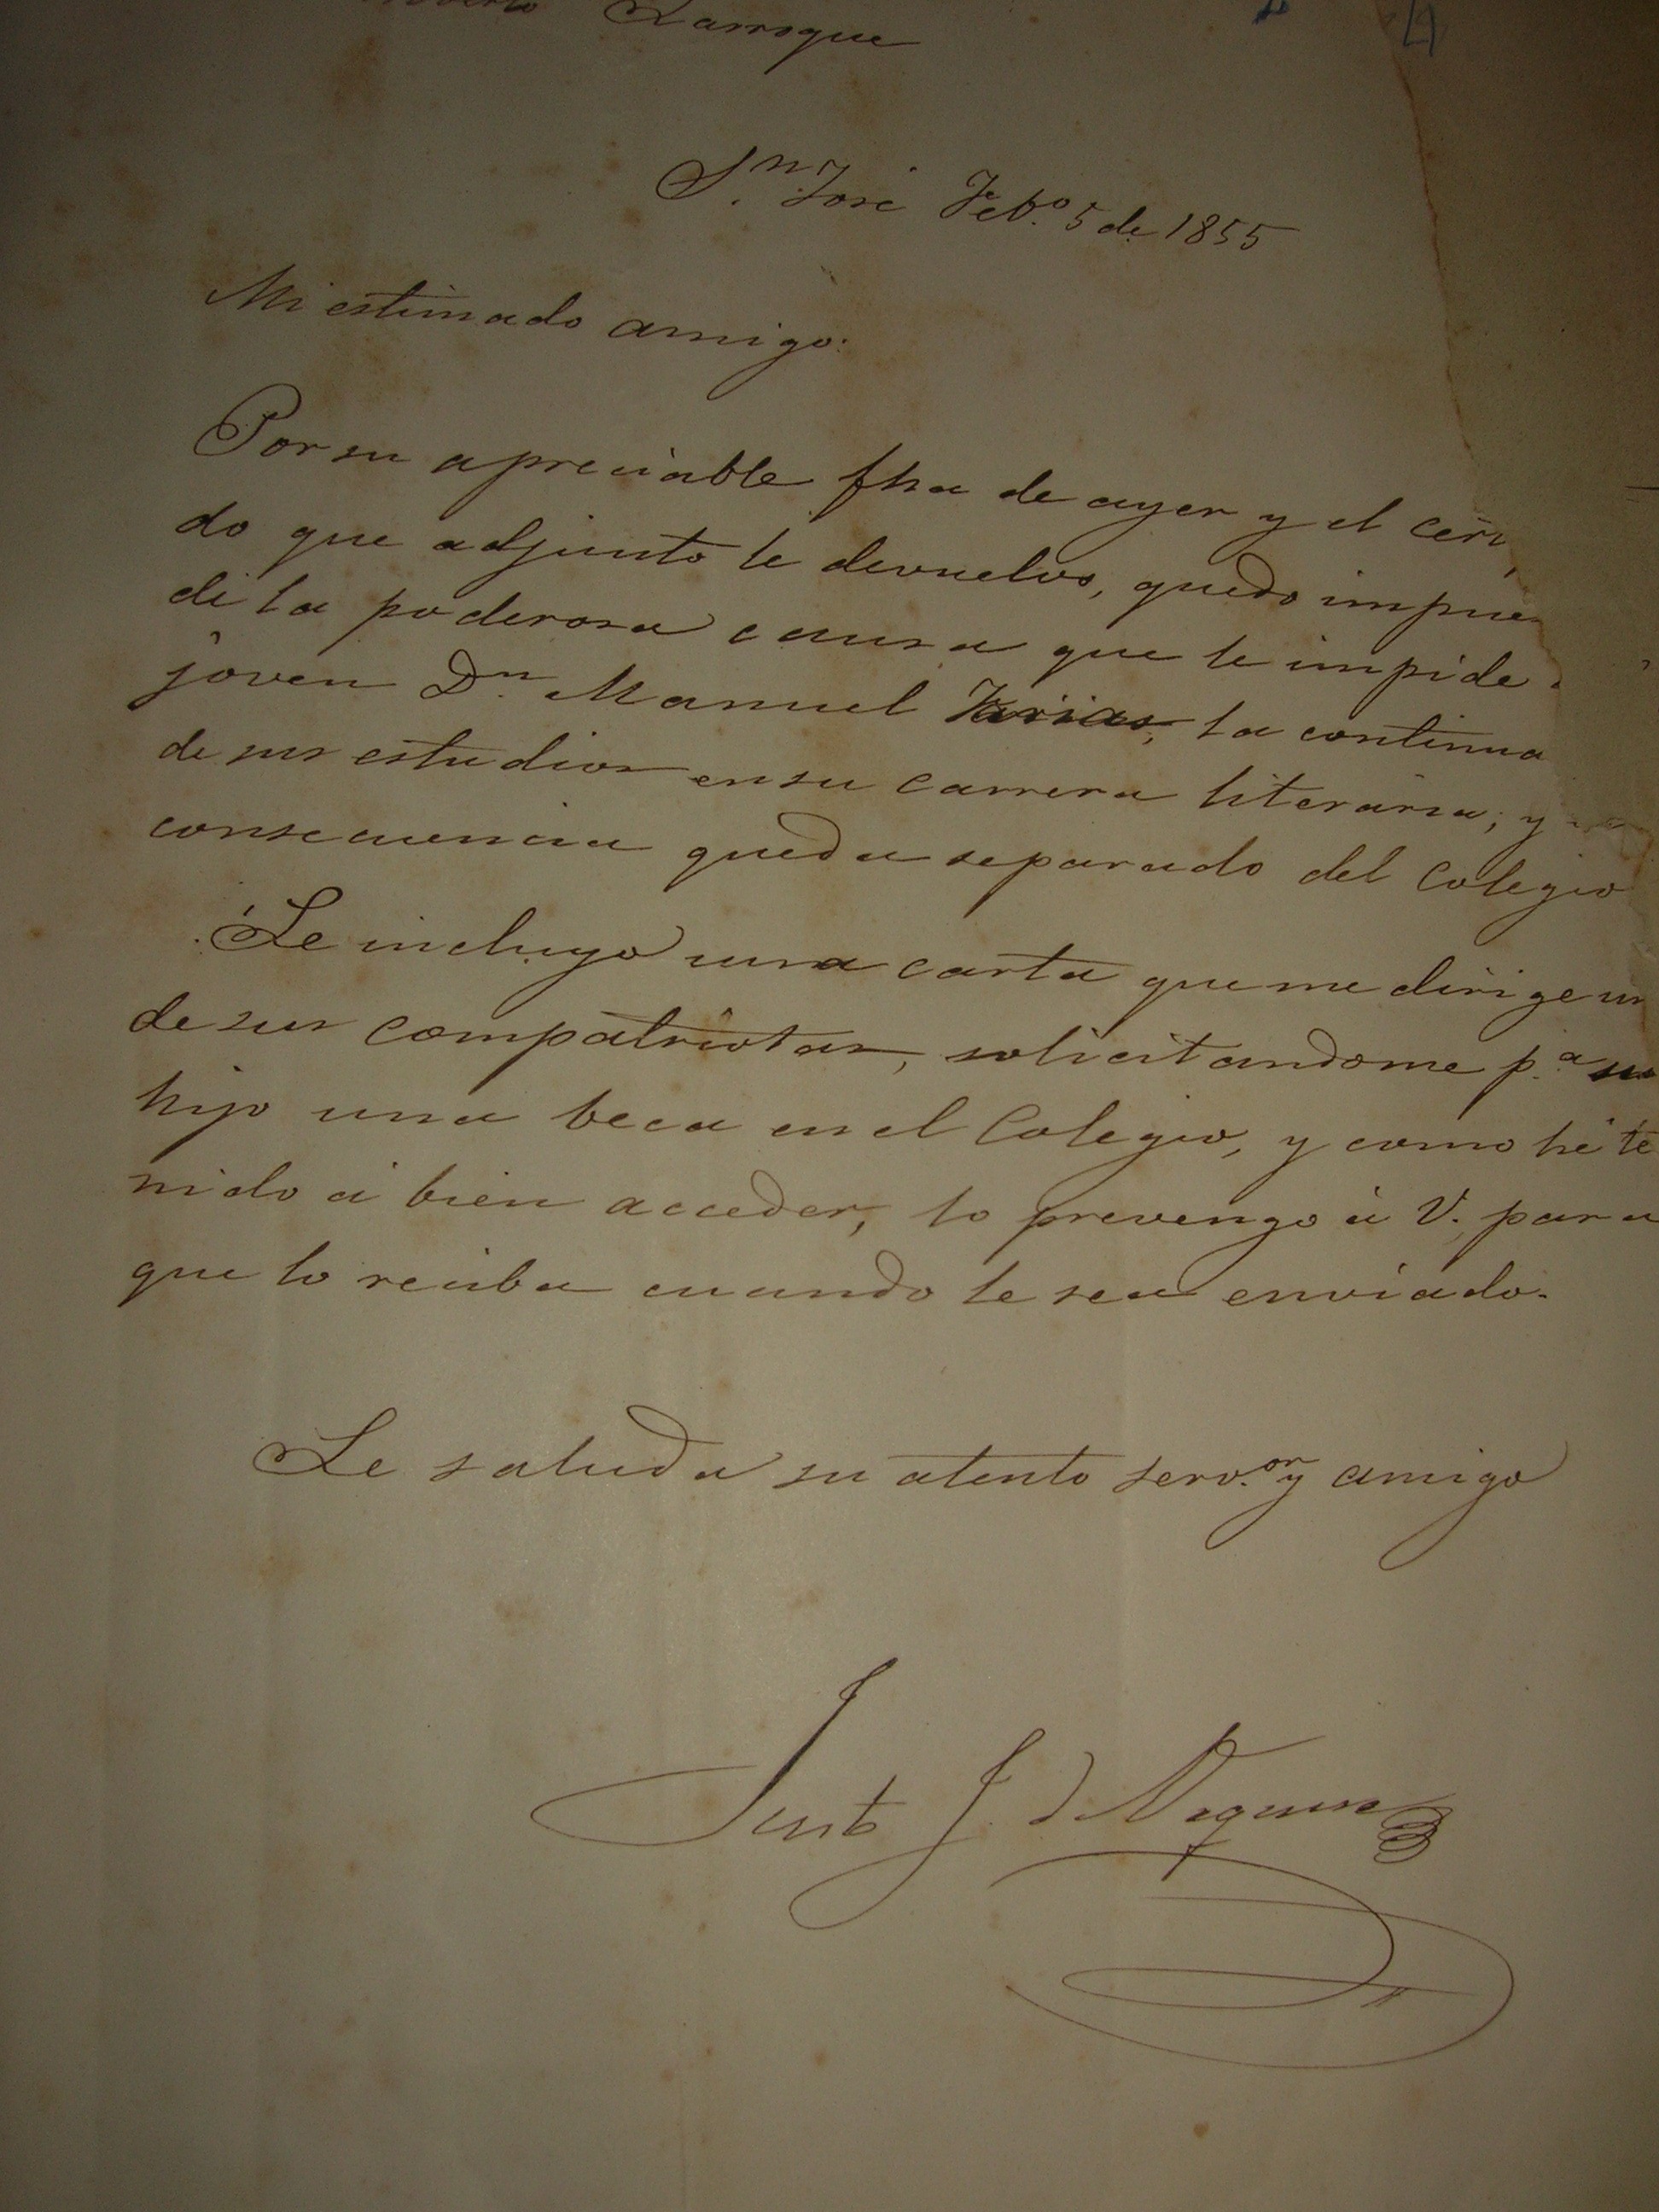 Larroque
S.n José Feb.o 5 de 1855
Mi estimado amigo:
Por su apreciable fha de ayer y el
do que adjunto le devuelvo, quedo impue
de la poderosa causa que le impide
joven D.n Manuel Farias, la continua
de sus estudios en su carrera literaria, y
consecuencia queda separado del Colegio
Le incluyo una carta que me dirige un
de sus compatriotas, solicitandome p.a su
hijo una beca en el Colegio, y como hé te
nido á bien acceder, lo prevengo á V. para
que lo reciba cuando le sea enviado.
Le saluda su atento serv.or y amigo
Justo J. d Urquiza